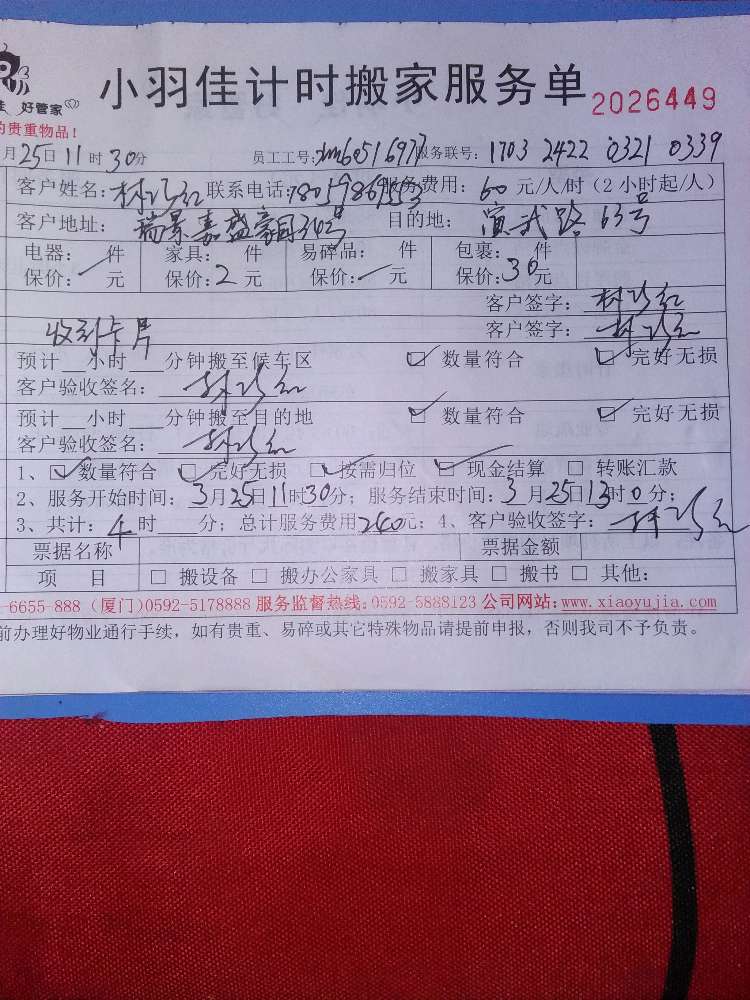 小羽佳计时搬家服务单 2026449
好管家
的贵重物品!
月25日11时30分 员工工号:xm6051697 服务联号:1703 2422 0321 0339
客户姓名: 联系电话: 服务费用:60元/人/时(2小时起/人)
客户地址:瑞景嘉盛豪园36号 目的地:演武路63号
电器: 件 家具: 件 易碎品: 件 包裹: 件
保价: 元 保价:2元 保价: 元 保价:30元
客户签字:
收到卡片 客户签字:
预计__小时___分钟搬至候车区 ☑ 数量符合 ☑ 完好无损
客户验收签名:
预计__小时___分钟搬至目的地 ☑ 数量符合 ☑ 完好无损
客户验收签名:
1、☑数量符合 ☑完好无损 ☑按需归位 ☑现金结算 □ 转账汇款
2、服务开始时间:3月25日11时30分;服务结束时间:3月25日13时0分;
3、共计:4时___分;总计服务费用240元;4、客户验收签字:
票据名称 票据金额
项 目 □ 搬设备 □ 搬办公家具 □ 搬家具 □ 搬书 □ 其他:
-6655-888(厦门)0592-5178888 服务监督热线:0592-5888123 公司网站:www.xiaoyujia.com
前办理好物业通行手续,如有贵重、易碎或其它特殊物品请提前申报,否则我司不予负责。